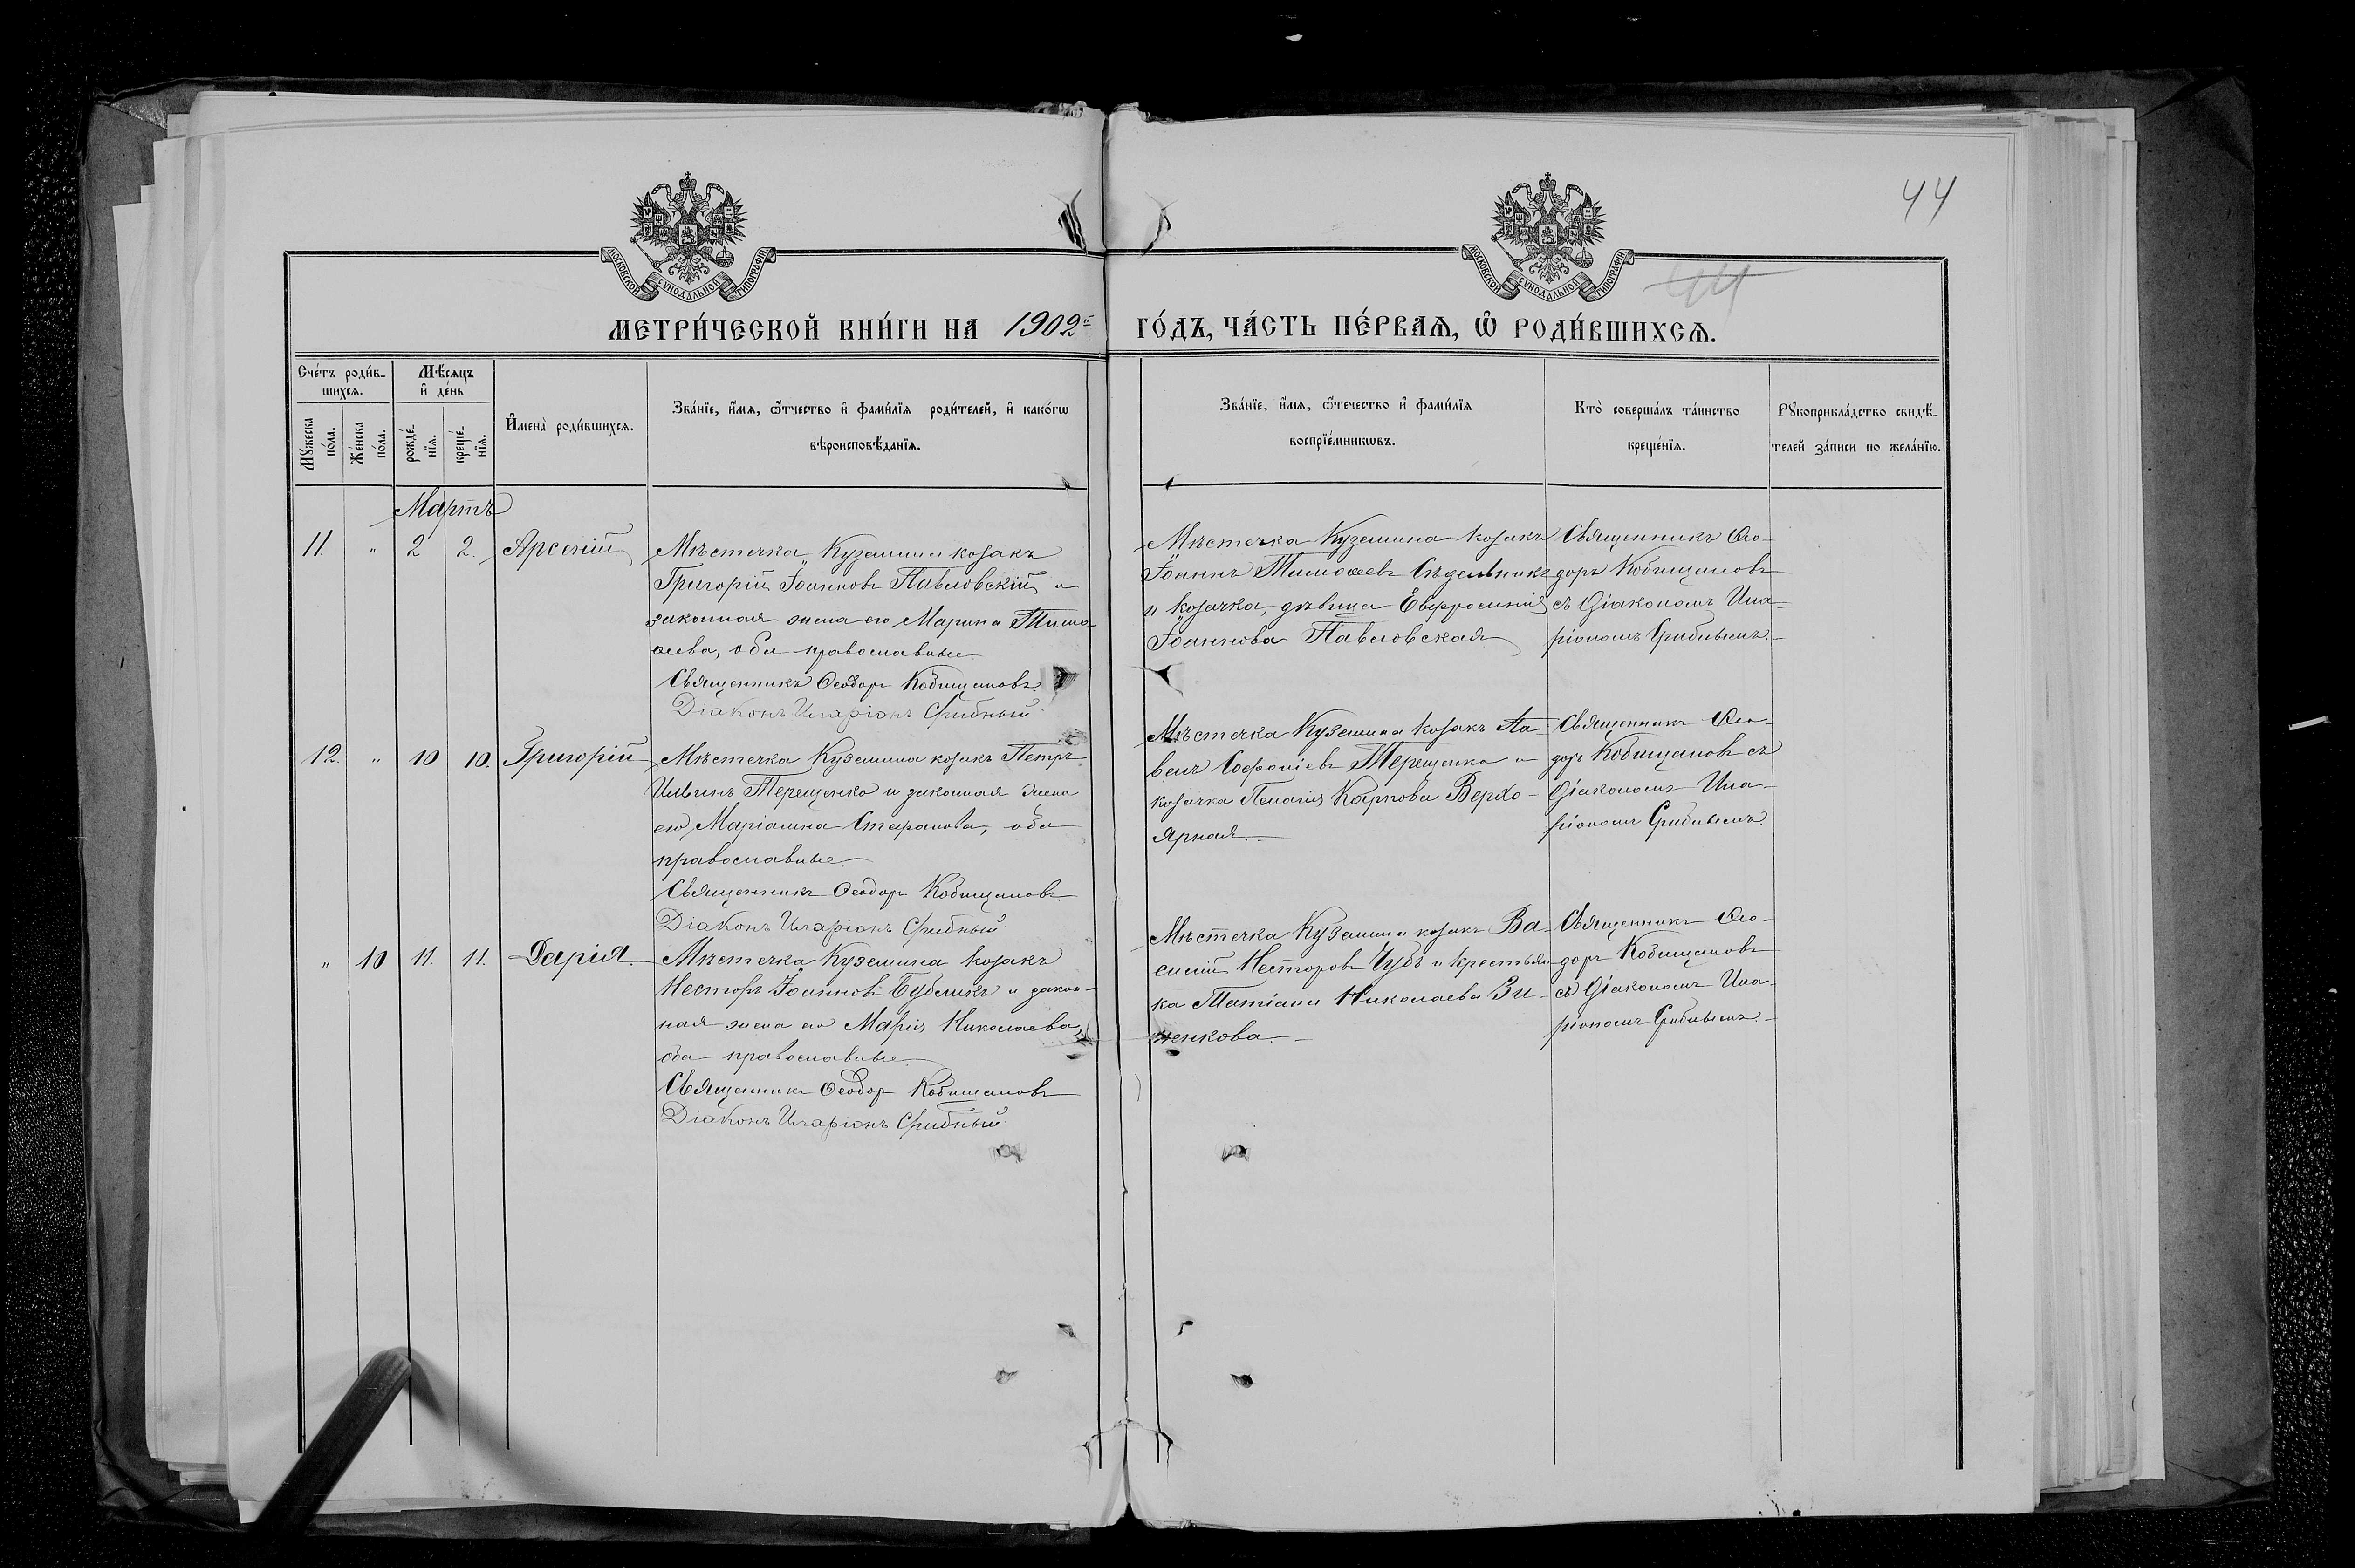 44
44
МОСКОВСКОЙ СѴНОДАЛЬНОЙ ТИПОГРАФІИ
МОСКОВСКОЙ СѴНОДАЛЬНОЙ ТИПОГРАФІИ
МЕТРИ́ЧЕСКОЙ КНИ́ГИ НА 1902й
ГО́ДЪ, ЧА́СТЬ ПЕ́РВАѦ, Ѽ РОДИ́ВШИХСѦ.
Сче́тъ роди́в-
шихсѧ.
Мѣ́сѧцъ
и҆ де́нь
Мꙋ́жеска
по́ла.
Же́нска
по́ла.
рожде́-
нїѧ.
креще́-
нїѧ.
И҆мена̀ роди́вшихсѧ.
Зва́нїе, и҆́мѧ, ѻ҆́тчество и҆ фами́лїѧ роди́телей, и҆ како́гѡ
вѣроисповѣ́данїѧ.
Зва́нїе, и҆́мѧ, ѻ҆́течество и҆ фами́лїѧ
воспрїе́мникѡвъ.
Кто̀ соверша́лъ та́инство
креще́нїѧ.
Рꙋкоприкла́дство свидѣ́-
телей за́писи по жела́нїю.
Мартъ
11. " 2 2. Арсеній
Мѣстечка Куземина козакъ
Григорій Іоанновъ Павловскій и
законная жена его Марина Тимо-
ѳеева, оба православные
Священникъ Ѳеодоръ Кобищановъ
Діаконъ Иларіонъ Срибный
Мѣстечка Куземина козакъ
Іоаннъ Тимоѳеевъ Сѣдельникъ
и козачка, дѣвица Евфросинія
Іоаннова Павловская
Священникъ Ѳео-
доръ Кобищановъ
съ діакономъ Ила-
ріономъ Срибнымъ.
12. " 10 10. Григорій
Мѣстечка Куземина козакъ Петръ
Ильинъ Терещенко и законная жена
его Маріамна Стефанова, оба
православные.
Священникъ Ѳеодоръ Кобищановъ
Діаконъ Иларіонъ Срибный
Мѣстечка Куземина козакъ Па-
велъ Софоніевъ Терещенко и
козачка Пелагія Карпова Верхо-
ярная.
Священникъ Ѳео-
доръ Кобищановъ съ
діакономъ Ила-
ріономъ Срибнымъ.
" 10 11. 11. Дарія.
Мѣстечка Куземина козакъ
Несторъ Іоанновъ Бубликъ и закон-
ная жена его Марія Николаева,
оба православные
Священникъ Ѳеодоръ Кобищановъ
Діаконъ Иларіонъ Срибный
Мѣстечка Куземина козакъ Ва-
силій Несторовъ Чубъ и крестьян-
ка Татіана Николаева Зи-
ненкова.
Священникъ Ѳео-
доръ Кобищановъ
съ діакономъ Ила-
ріономъ Срибнымъ.